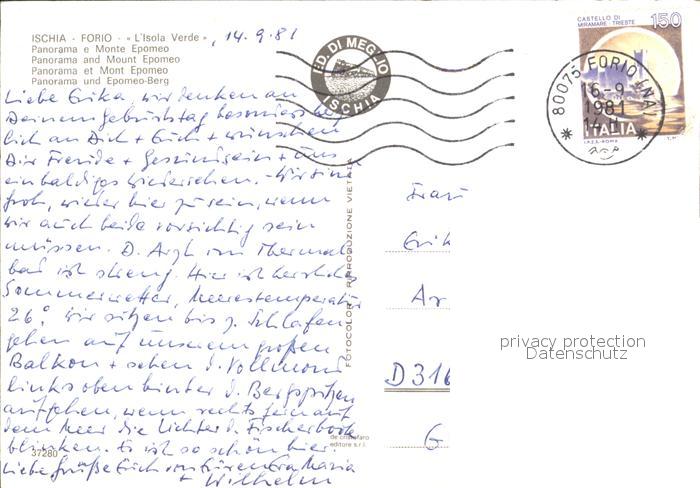 ISCHIA - FORIO - «L'Isola Verde», 14.9.81
Panorama e Monte Epomeo
Panorama and Mount Epomeo
Panorama et Mont Epomeo
Panorama und Epomeo-Berg
Liebe Erika, wir denken an
Deinem Geburtstag besonders herz
lich an Dich + Euch + wünschen
Dir Freude + Gesundsein + uns
ein baldiges Wiedersehen. Wir sind
froh, wieder hier zu sein, wenn
wir auch beide vorsichtig sein
müssen. D. Arzt im Thermal
bad ist streng. Hier ist herrlich
Sommerwetter, Meerestemperatur
26°. Wir sitzen bis z. Schlafen
gehen auf unserem großen
Balkon + sehen d. Vollmond
links oben hinter d. Bergspitzen
aufgehen, wenn rechts fein auf
dem Meer die Lichter d. Fischerboote
blinken. Es ist so schön hier.
37280
Liebe Grüße Euch von Euren Eva Maria
+ Wilhelm
ED. DI MEGLIO
ISCHIA
FOTOCOLOR - RIPRODUZIONE VIETATA
de cristofaro
editore s.r.l.
CASTELLO DI
MIRAMARE - TRIESTE
150
ITALIA
I.P.Z.S.-ROMA
80075 FORIO (NA)
16-9
1981
14 H
Frau
Erik
Ar
D 316
G
privacy protection
Datenschutz